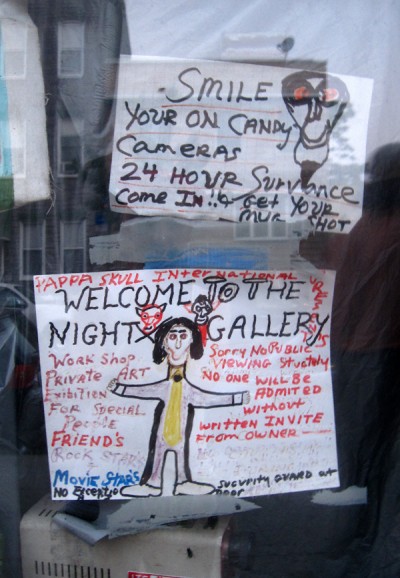 SMILE
YOUR ON CANDY
CAMERAS
24 HOUR SurVance
Come IN!! & GeT YOUR
MUG SHOT
YAPPA SKULL INTERNATIONAL
PRESENTS
WELCOME TO THE
NIGHT GALLERY
WORK SHOP
Private ART
Exibition
FOR Special
People
FRIEND'S
Rock STAR'S
MOVIE STAR'S
NO Exceptio
Sorry No PUBLIC
VIEWING Strutely
NO ONE WILL BE
ADMITED
without
written INVITE
FROM OWNER
Sucurity GUARD at
Door